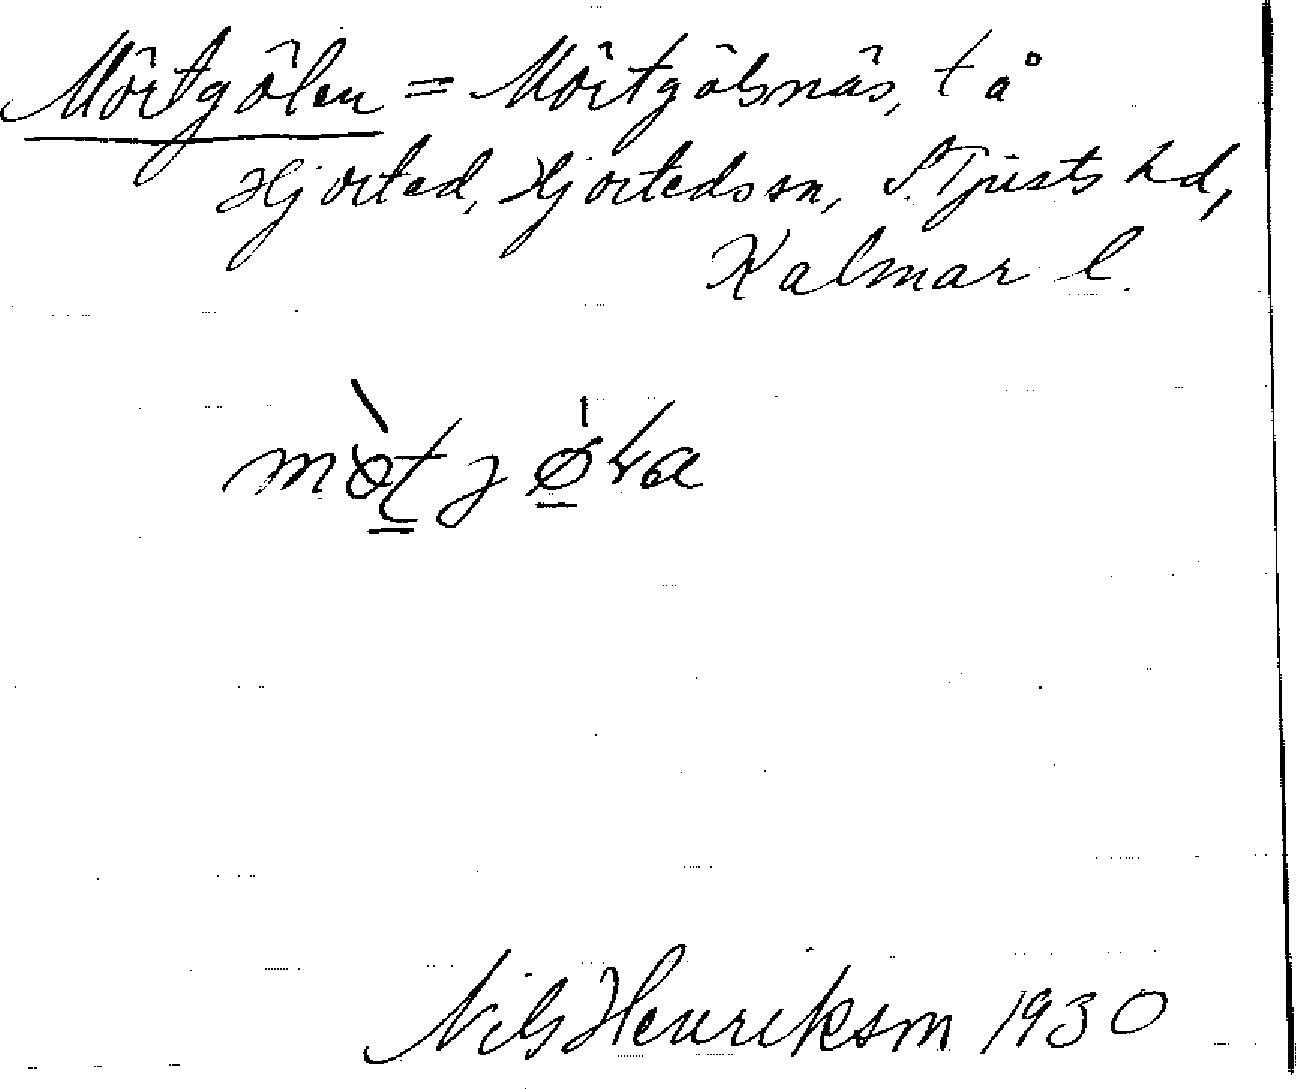 Mörtgölen = Mörtgölsnäs, t å
Hjorted, Hjorteds sn, S. Tjusts hd,
Kalmar l.
Nils Henrikson 1930